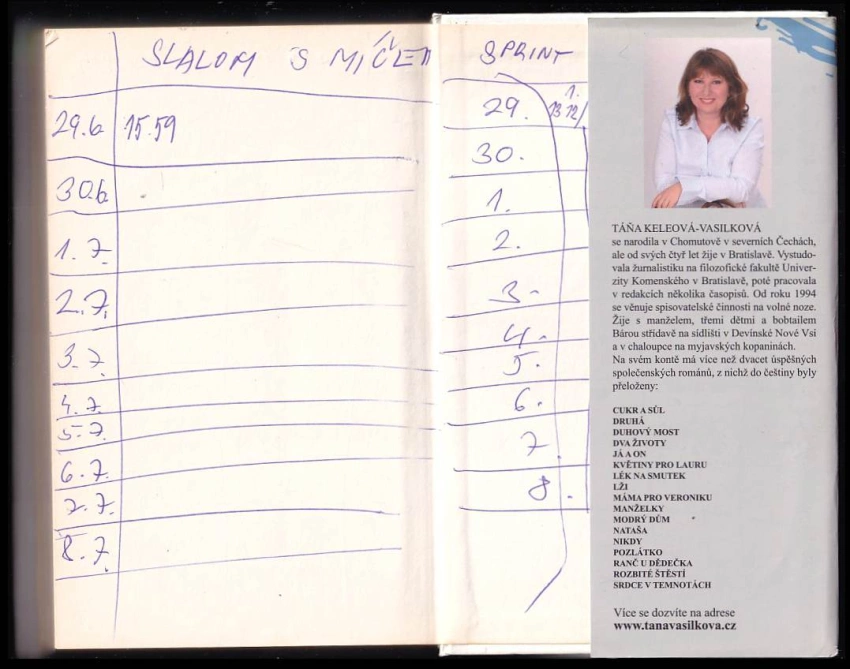 SLALOM S MÍČEM
29.6 15.59
30.6
1.7.
2.7.
3.7.
4.7.
5.7.
6.7.
7.7.
8.7.
SPRINT
29. 1.
30.
1.
2.
3.
4.
5.
6.
7
8.
TÁŇA KELEOVÁ-VASILKOVÁ
se narodila v Chomutově v severních Čechách,
ale od svých čtyř let žije v Bratislavě. Vystudo-
vala žurnalistiku na filozofické fakultě Univer-
zity Komenského v Bratislavě, poté pracovala
v redakcích několika časopisů. Od roku 1994
se věnuje spisovatelské činnosti na volné noze.
Žije s manželem, třemi dětmi a bobtailem
Bárou střídavě na sídlišti v Devínské Nové Vsi
a v chaloupce na myjavských kopaninách.
Na svém kontě má více než dvacet úspěšných
společenských románů, z nichž do češtiny byly
přeloženy:
CUKR A SŮL
DRUHÁ
DUHOVÝ MOST
DVA ŽIVOTY
JÁ A ON
KVĚTINY PRO LAURU
LÉK NA SMUTEK
LŽI
MÁMA PRO VERONIKU
MANŽELKY
MODRÝ DŮM
NATAŠA
NIKDY
POZLÁTKO
RANČ U DĚDEČKA
ROZBITÉ ŠTĚSTÍ
SRDCE V TEMNOTÁCH
Více se dozvíte na adrese
www.tanavasilkova.cz